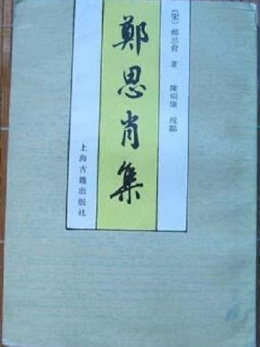 （宋）鄭思肖 著
陳福康 校點
鄭思肖集
上海古籍出版社